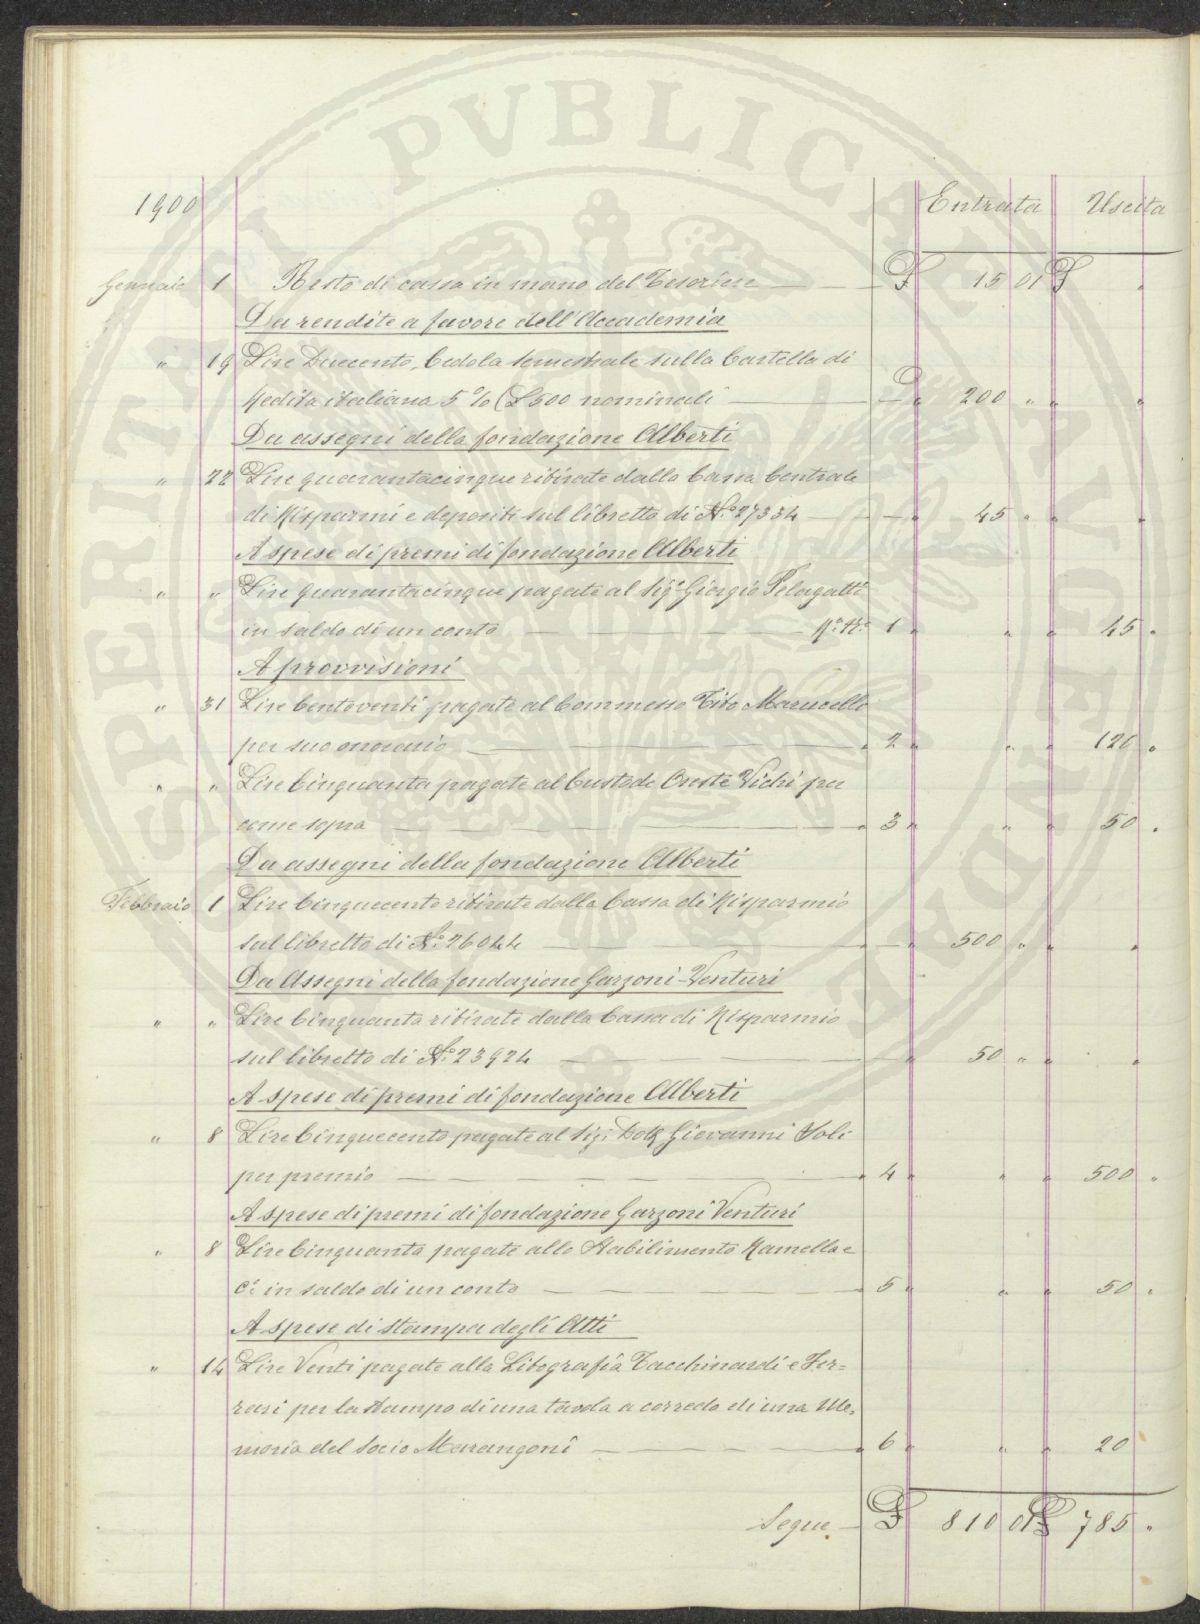 PROSPERITATI PVBLICAE AVGENDAE
1900 Entrata Uscita
Gennaio 1 Resto di cassa in mano del Tesoriere — — — £ 15 01 £ "
Da rendite a favore dell'Accademia
" 19 Lire Duecento, Cedola semestrale sulla Cartella di
Redita italiana 5% (£ 500 nominali — — " 200 " " "
Da assegni della fondazione Alberti
" 22 Lire quarantacinque ritirate dalla Cassa Centrale
di Risparmi e depositi sul libretto di N.º 27334 — — " 45 " " "
A spese di premi di fondazione Alberti
" " Lire quarantacinque pagate al Sigr Giorgio Pelagatti
in saldo di un conto — — — 1 " " " 45 "
A provvisioni
" 31 Lire Centoventi pagate al Commesso Tito Marucelli
per suo onorario — — " 2 " " " 120 "
" " Lire Cinquanta pagate al Custode Oreste Vichi per
come sopra — — " 3 " " " 50 "
Da assegni della fondazione Alberti
Febbraio 1 Lire Cinquecento ritirate dalla Cassa di Risparmio
sul libretto di N.º 26044 — — " 500 " " "
Da Assegni della fondazione Garzoni-Venturi
" " Lire Cinquanta ritirate dalla Cassa di Risparmio
sul libretto di N.º 23924 — — " 50 " " "
A spese di premi di fondazione Alberti
" 8 Lire Cinquecento pagate al Sig. Dott Giovanni Soli
per premio — — — " 4 " " " 500 "
A spese di premi di fondazione Garzoni Venturi
" 8 Lire Cinquanta pagate allo Stabilimento Ramella e
C.i in saldo di un conto — — — " 5 " " " 50 "
A spese di stampa degli Atti
" 14 Lire Venti pagate alla Litografia Tacchinardi e Fer=
rari per la stampa di una tavola a corredo di una Me=
moria del Socio Marangoni — — — " 6 " " " 20
Segue — £ 810 01 £ 785 "